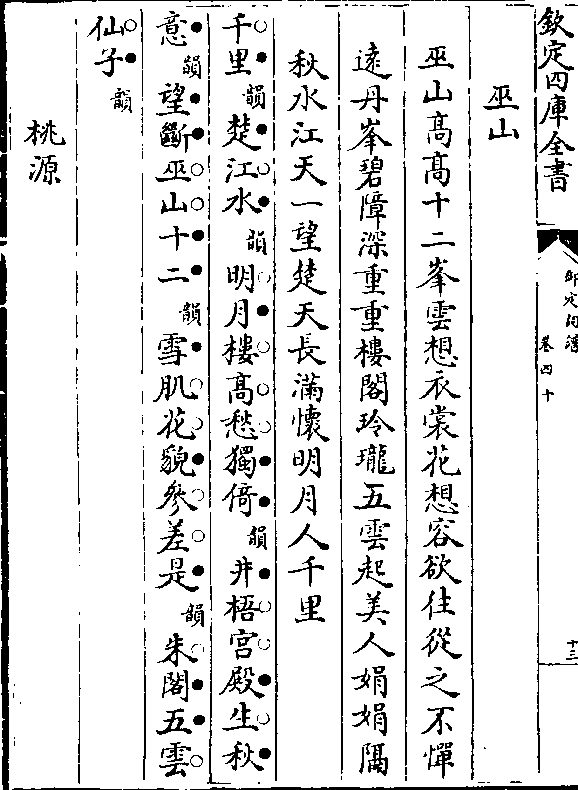 欽定四庫全書
御定詞譜
卷四十
十三
巫山
巫山髙髙十二峯雲想衣裳花想容欲往從之不憚
逺丹峯碧障深重重樓閣玲瓏五雲起美人娟娟隔
秋水江天一望楚天長滿懷明月人千里
千里韻楚江水韻明月樓髙愁獨倚韻井梧宫殿生秋
意韻望斷巫山十二韻雪肌花貌參差是韻朱閣五雲
仙子韻
桃源